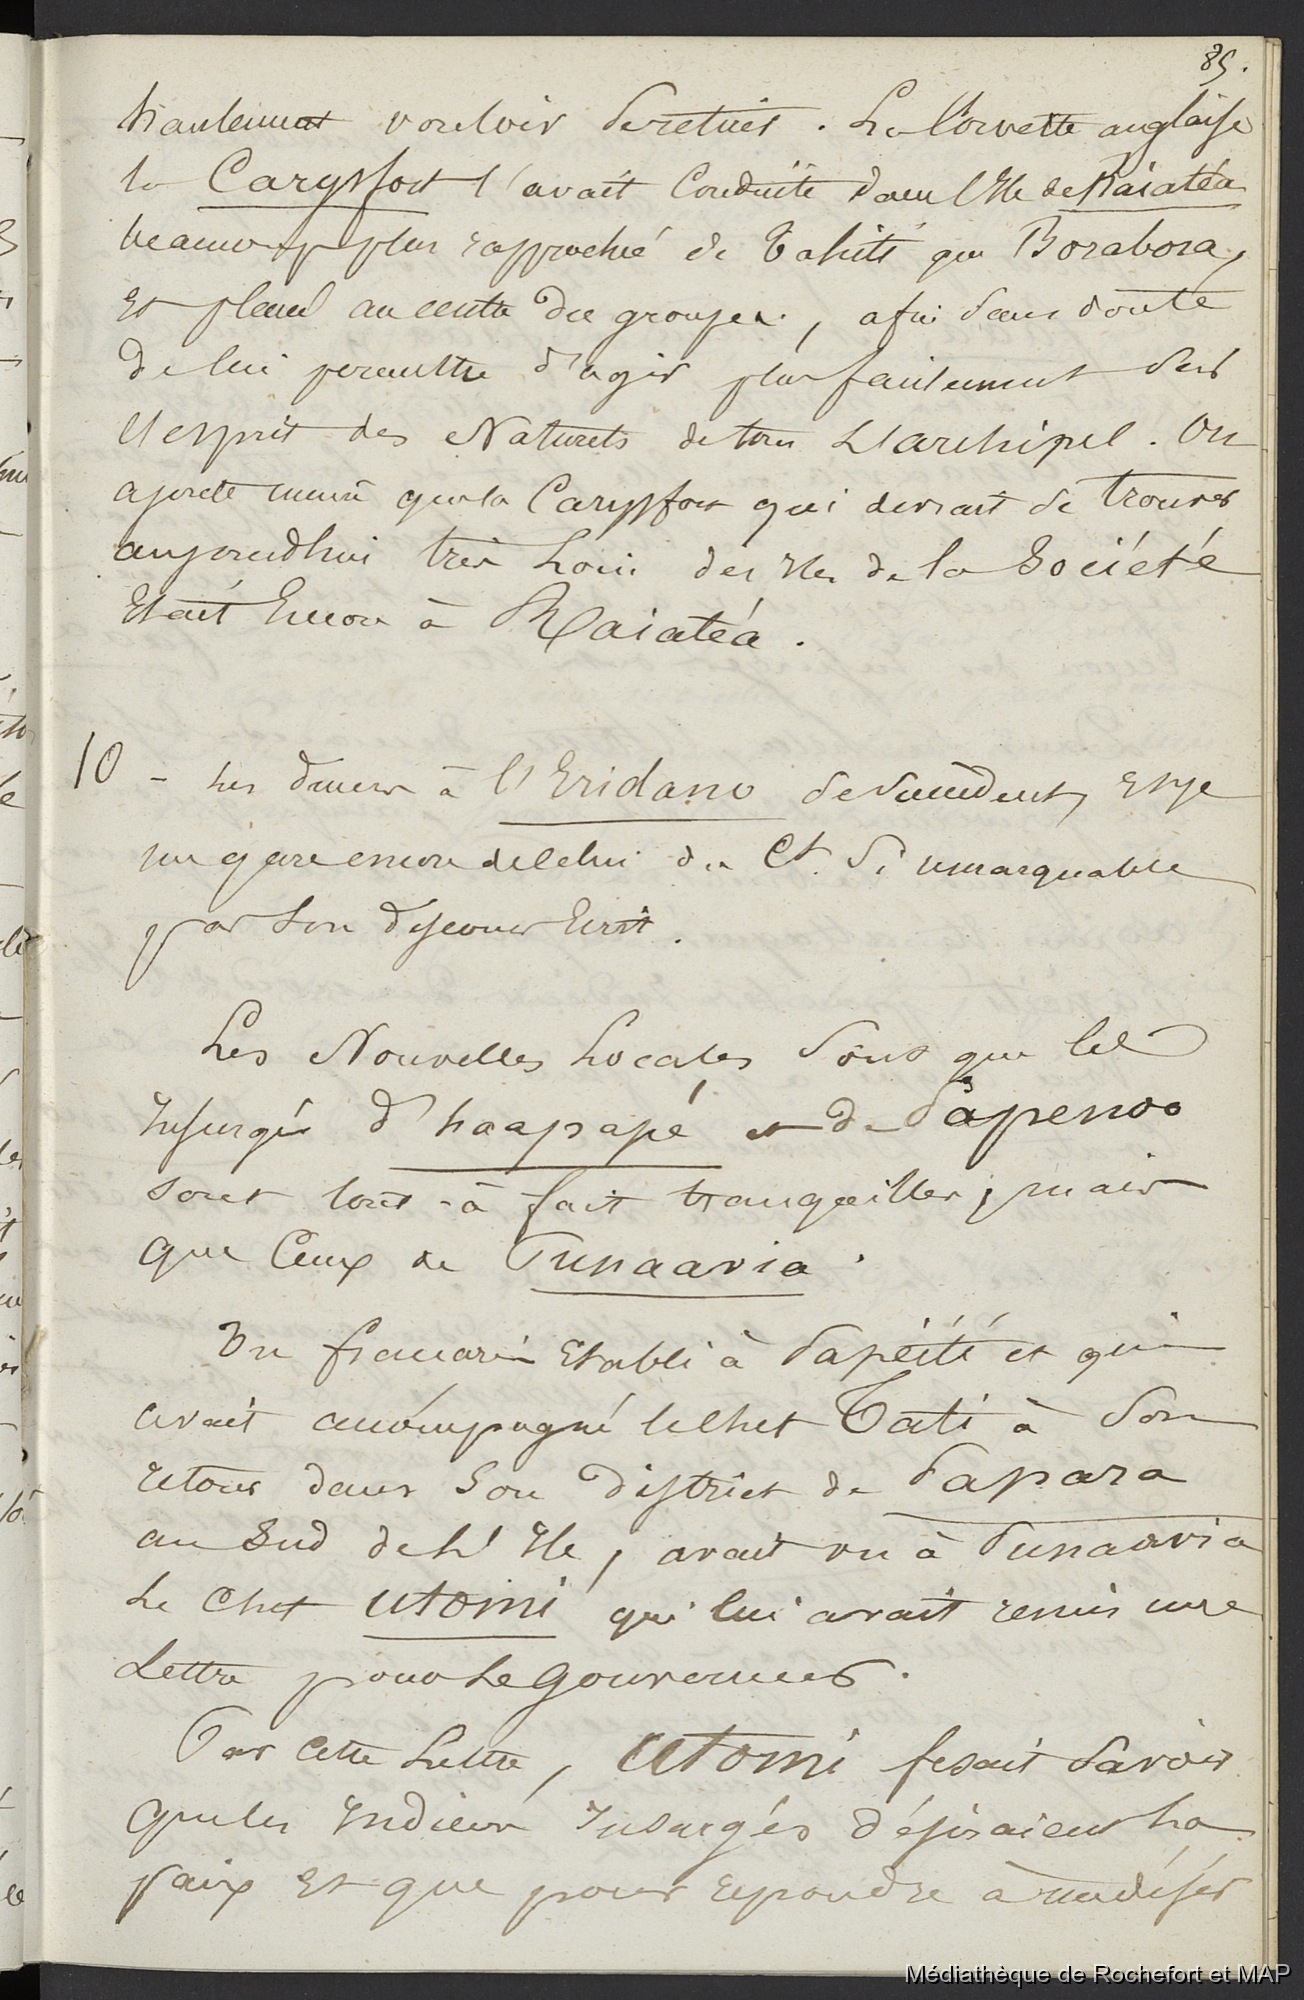 85.
hautement vouloir se retirer. La Corvette anglaise
la Carysfort l'avait Conduite dans l'Ile de Raiatéa
beaucoup plus rapproché de Tahiti que Borabora,
et placé au centre du groupe, afin sans doute
de lui permettre d'agir plus facilement sur
l'esprit des Naturels de tout L'archipel. On
ajoute même que la Carysfort qui devrait se trouver
aujourdhui très Loin des Iles de la Société
Etait Encore à Raiatéa.
10 - Les diners à l'Eridano se succèdent, et je
me gare encore de celui du Ct. Si remarquable
par son dejeuner
Les Nouvelles Locales sont que les
Insurgés d'haapapé et de Papenoo
sont tout-à fait tranquilles, mais
que Ceux de Punaavia.
Un français Etabli à Papéïté et qui
avait accompagné le chef Tati à son
retour dans son district de Papara
au Sud de L'Ile, avait vu à Punaavia
Le Chef Utomi qui lui avait remis une
Lettre pour Le Gouverneur.
Par cette Lettre, Utomi fesait savoir
que les Indiens Insurgés désiraient La
paix et que pour repondre à
Médiathèque de Rochefort et MAP